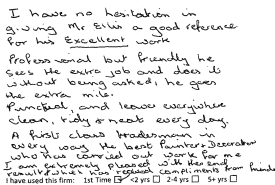 I have no hesitation in
giving Mr Ellis a good reference
for his Excellent work
Professional but friendly he
sees the extra job and does it
without being asked, he goes
the extra mile.
Punctual, and leaves everywhere
clean, tidy & neat every day.
A first class tradesman in
every way the best Painter & Decorator
who has carried out work for me
I am extremely pleased with the end
result & which has received compliments from friends
I have used this firm: 1st Time <2 yrs 2-4 yrs 5+ yrs